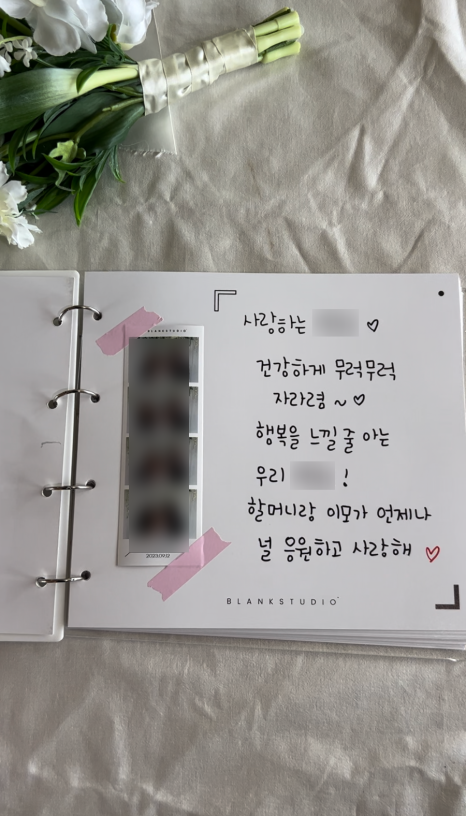 BLANKSTUDIO
사랑하는 ♡
건강하게 무럭무럭
자라렴 ~ ♡
행복을 느낄 줄 아는
우리 !
할머니랑 이모가 언제나
널 응원하고 사랑해 ♡
BLANKSTUDIO